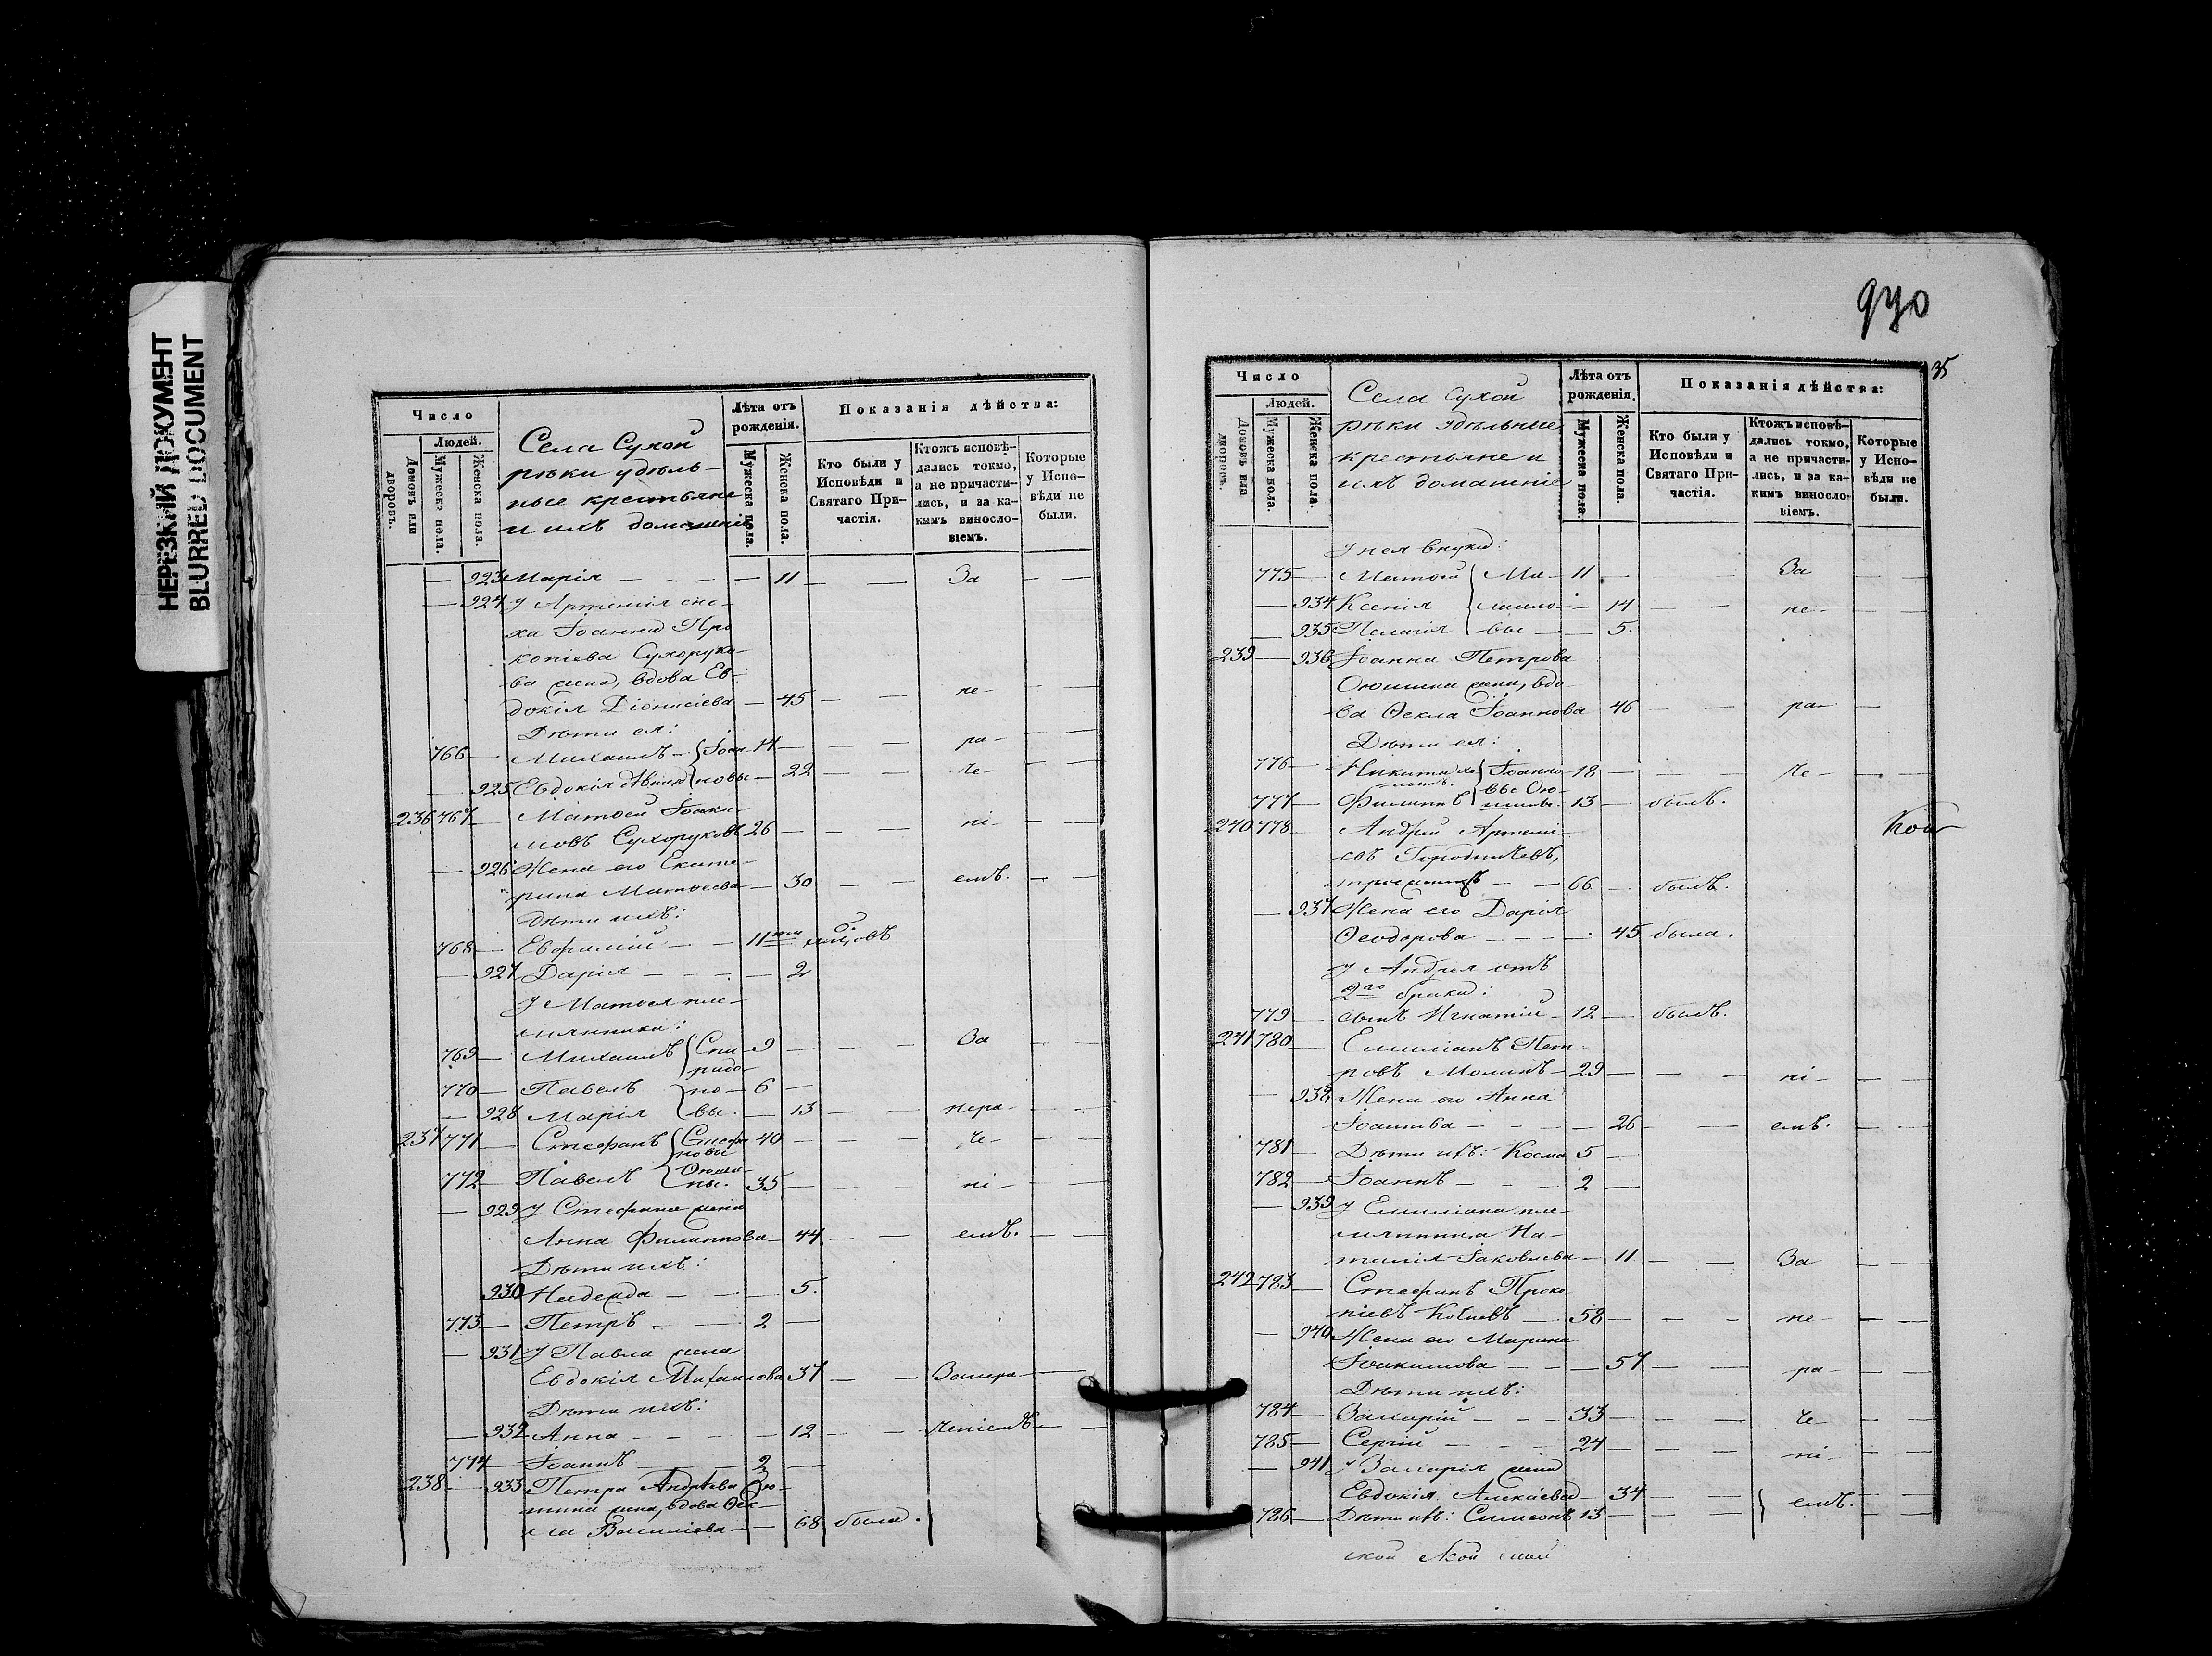 НЕРЕЗКИЙ ДОКУМЕНТ
BLURRED DOCUMENT
Число
Людей.
Домовъ или дворовъ.
Мужеска пола.
Женска пола.
Села Сухой
рѣки удѣль-
ные крестьяне
и ихъ домашніе
Лѣта отъ
рожденія.
Мужеска пола.
Женска пола.
Показанія дѣйства:
Кто были у
Исповѣди и
Святаго При-
частія.
Ктожъ исповѣ-
дались токмо,
а не причасти-
лись, и за ка-
кимъ винosло-
віемъ.
Которые
у Испо-
вѣди не
были.
923 Марія 11 За
924 У Артемія сно-
ха Іоанна Про
копіева Сухоруко-
ва жена, вдова Ев-
докія Діонисіева 45 не-
Дѣти ея:
766 Михаилъ Іоан 14 ра-
925 Евдокія новы 22 че-
236 767 Матѳей Іоаки-
мовъ Сухоруковъ 26 ні-
926 Жена его Екате-
рина Матѳеева 30 емъ.
Дѣти ихъ:
768 Евфимій 11
927 Дарія 2
У Матѳея пле-
мянники:
769 Михаилъ Спи 9 За
ридо
770 Павелъ но 6
928 Марія вы. 13 нера-
237 771 Стефанъ Стефа 40 че-
новы
772 Павелъ Ѳюши- 35 ні-
ны.
929 У Стефана жена
Анна Филиппова 44 емъ.
Дѣти ихъ:
930 Надежда 5.
773 Петръ 2
931 У Павла жена
Евдокія Михаилова 37 Занера-
Дѣти ихъ:
932 Анна 12 ченіемъ
774 Іоаннъ 2
238 933 Петра Андрѣева Ѳю-
шина жена, вдова Ѳек-
ла Василіева 68 была.
970
35
Число
Людей.
Домовъ или дворовъ.
Мужеска пола.
Женска пола.
Села Сухой
рѣки удѣльные
крестьяне и
ихъ домашніе
Лѣта отъ
рожденія.
Мужеска пола.
Женска пола.
Показанія дѣйства:
Кто были у
Исповѣди и
Святаго При-
частія.
Ктожъ исповѣ-
дались токмо,
а не причасти-
лись, и за ка-
кимъ винosло-
віемъ.
Которые
у Испо-
вѣди не
были.
У нея внуки:
775 Матѳей Ми 11 За
934 Ксенія 14 не-
935 Пелагія вы 5.
239 936 Іоанна Петрова
Ѳюшина жена, вдо-
ва Ѳекла Іоаннова 46 ра-
Дѣти ея:
776 Никита Іоанно 18 че-
777 Филиппъ вы Ѳю- 13 былъ.
шины.
240 778 Андрей Артемі-
евъ Городничевъ,
66 былъ.
937 Жена его Дарія
Ѳеодорова 45 была.
У Андрея отъ
2го брака:
779 сынъ Игнатій 12 былъ.
241 780 Емиліанъ Пет-
ровъ Молинъ 29 ні-
938 Жена его Анна
Іоаннова 26 емъ.
781 Дѣти ихъ: Косма 5
782 Іоаннъ 2
939 У Емиліана пле-
мянница На-
талія Іаковлева 11 За
242 783 Стефанъ Проко
піевъ 58 не-
940 Жена его Марина
Іоакимова 57 ра-
Дѣти ихъ:
784 Захарій 33 че-
785 Сергій 24 ні-
941 У Захарія жена
Евдокія Алексіева 34 емъ.
786 Дѣти ихъ: Симеонъ 13